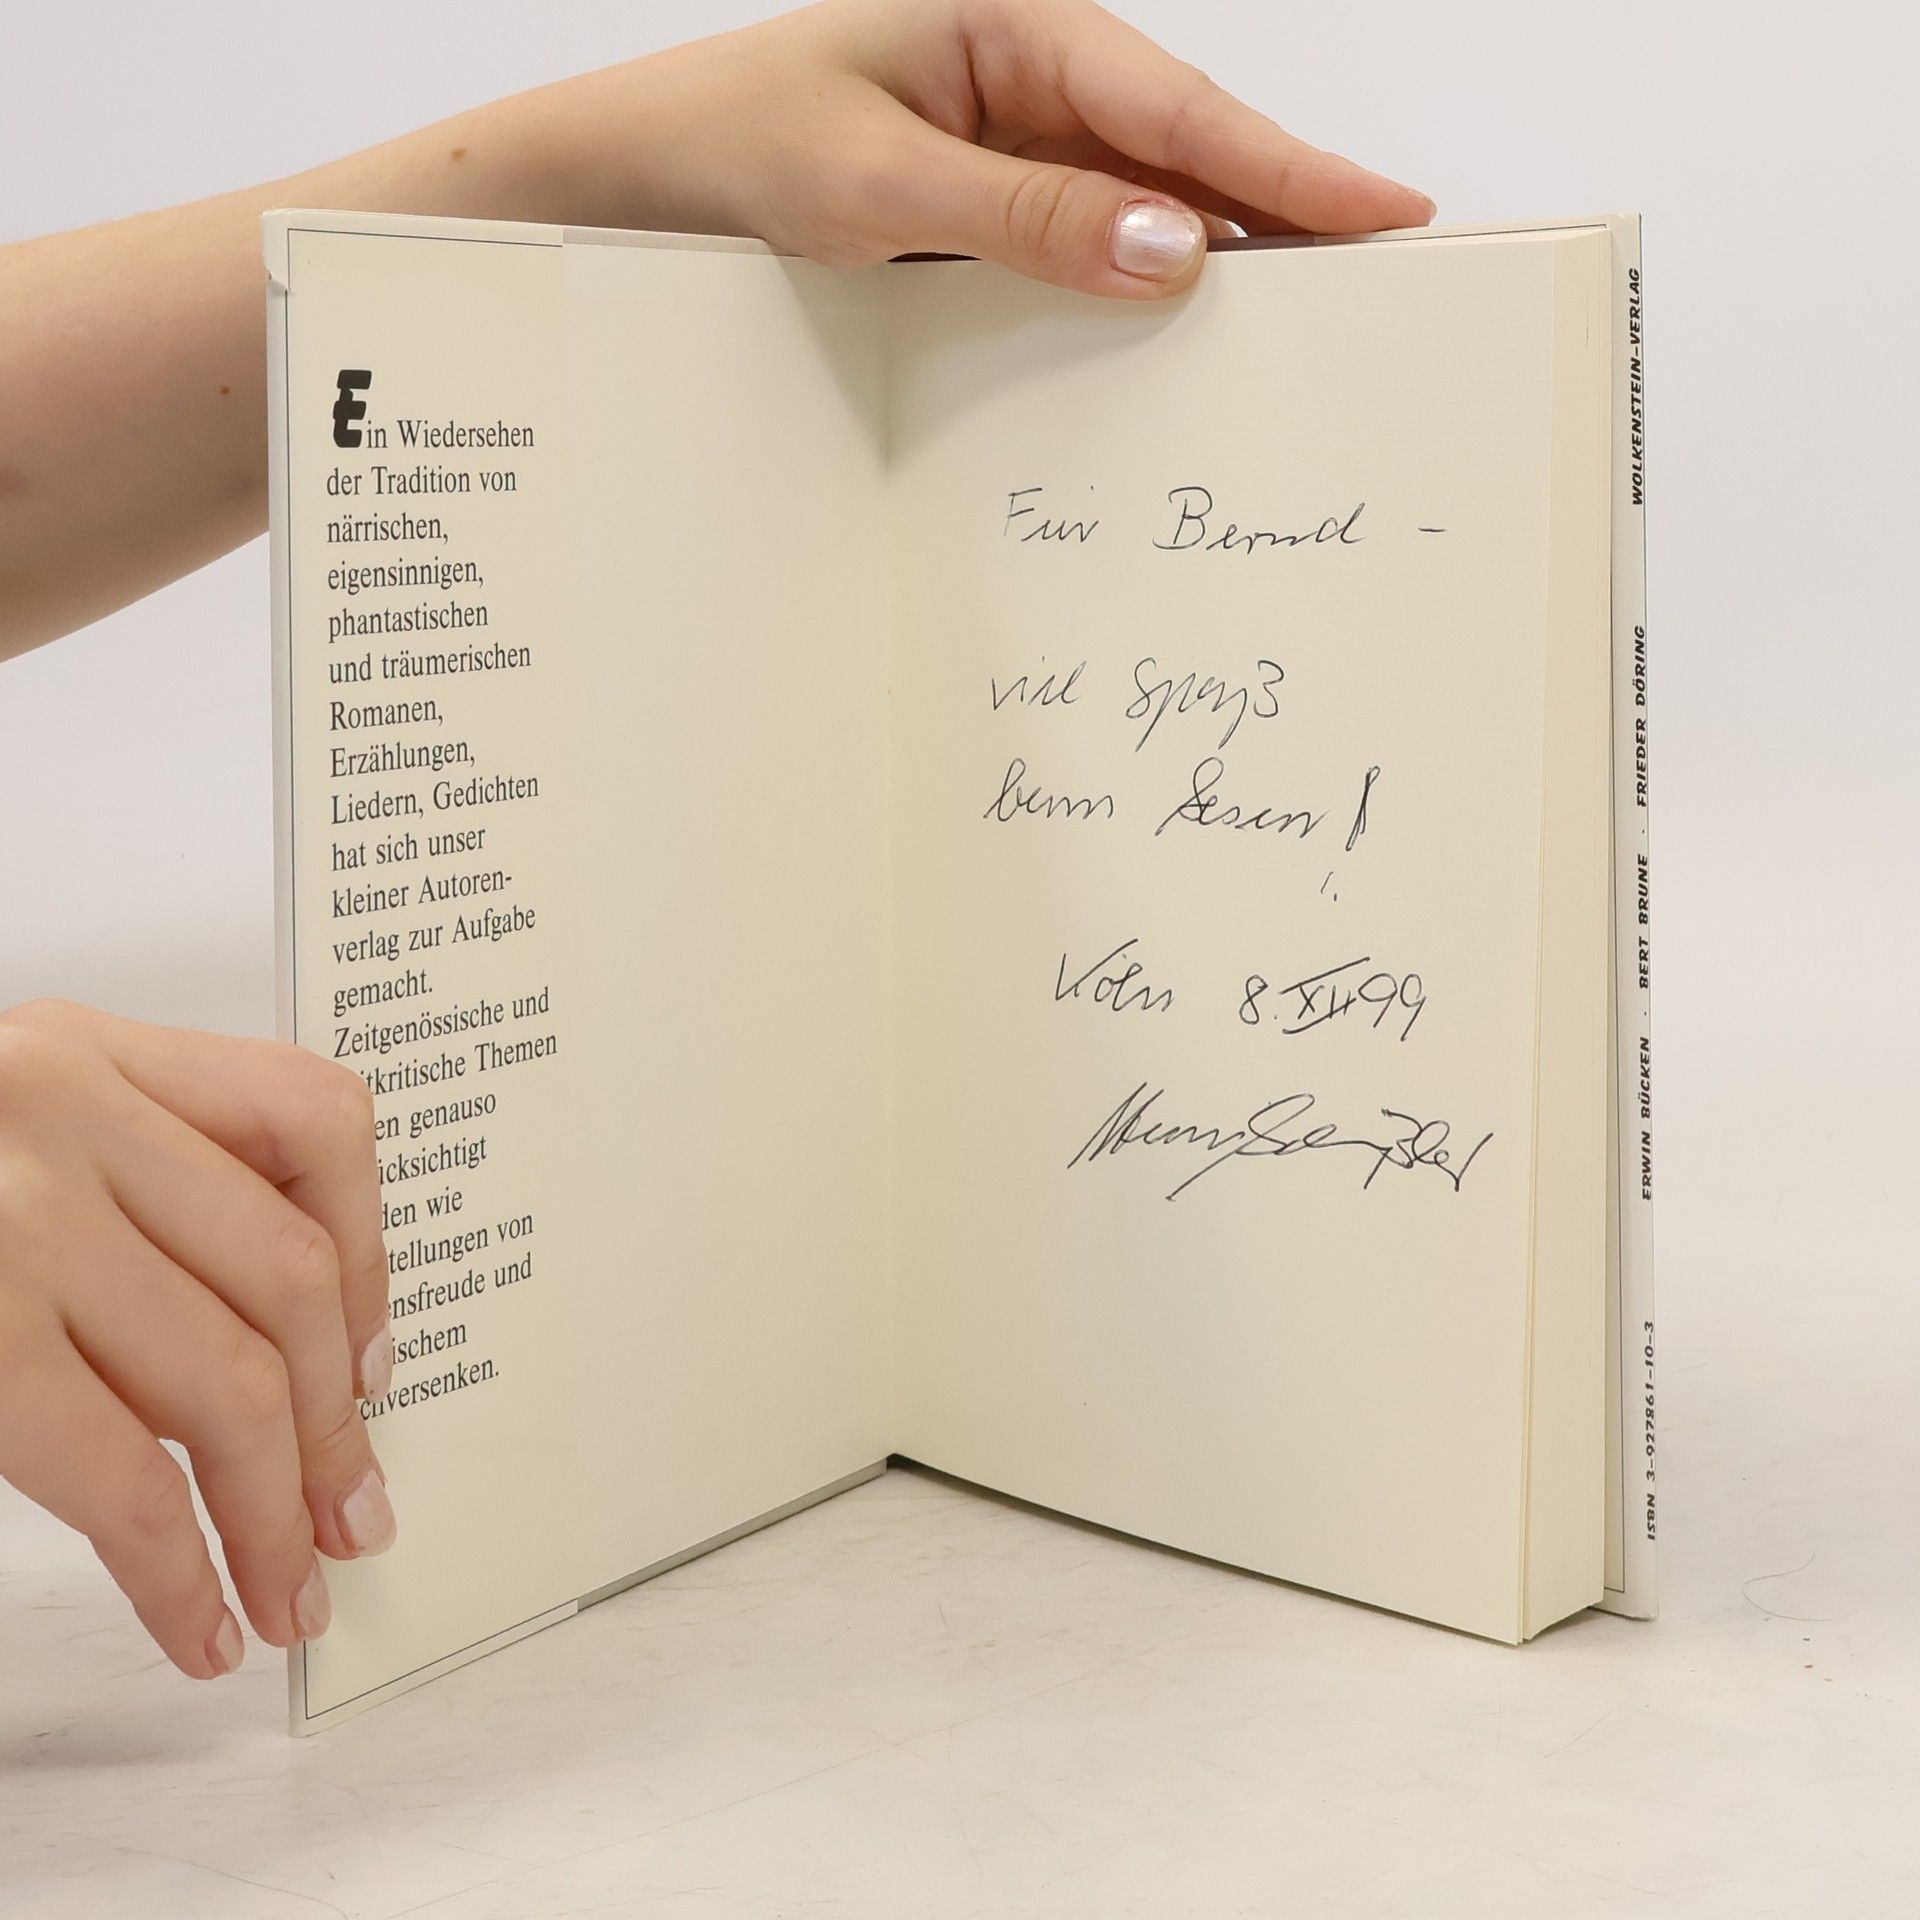 Ein Wiedersehen
der Tradition von
närrischen,
eigensinnigen,
phantastischen
und träumerischen
Romanen,
Erzählungen,
Liedern, Gedichten
hat sich unser
kleiner Autoren-
verlag zur Aufgabe
gemacht.
Zeitgenössische und
itkritische Themen
en genauso
icksichtigt
den wie
tellungen von
ensfreude und
ischem
chversenken.
Für Bernd -
viel Spaß
beim Lesen!
Köln 8.XII 99
WOLKENSTEIN-VERLAG
ERWIN BÜCKEN · BERT BRUNE · FRIEDER DÖRING
ISBN 3-927861-10-3